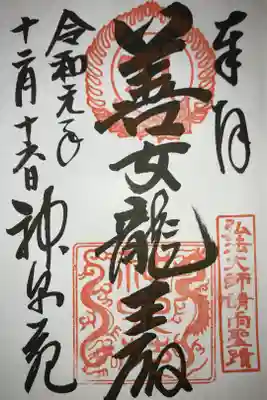 奉拝
弘法大師請雨聖蹟
善女龍王殿
令和元年
十二月十六日
神泉苑